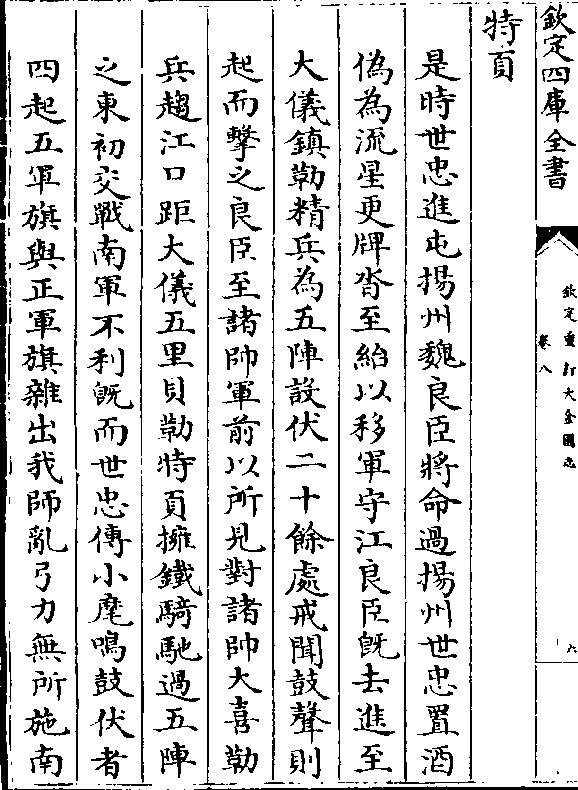 欽定四庫全書
欽定重訂大金國志
卷八
六
特頁
是時世忠進屯揚州魏良臣將命過揚州世忠置酒
偽為流星更牌沓至紿以移軍守江良臣既去進至
大儀鎮勒精兵為五陣設伏二十餘處戒聞鼓聲則
起而擊之良臣至諸帥軍前以所見對諸帥大喜勒
兵趨江口距大儀五里貝勒特頁擁鐵騎馳過五陣
之東初交戰南軍不利既而世忠傳小麾鳴鼓伏者
四起五軍旗與正軍旗雜出我師亂弓刀無所施南